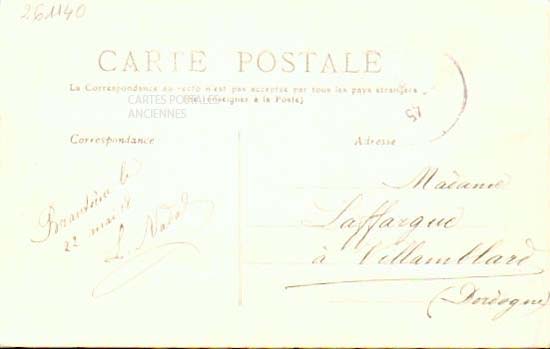 261140
CARTE POSTALE
La Correspondance au recto n'est pas acceptée par tous les pays étrangers
(Se renseigner à la Poste)
CARTES POSTALES
ANCIENNES
45
Correspondance
Adresse
Brantôme le
22 mai
L. Nadal
Madame
Laffargue
à Villamblard
(Dordogne)